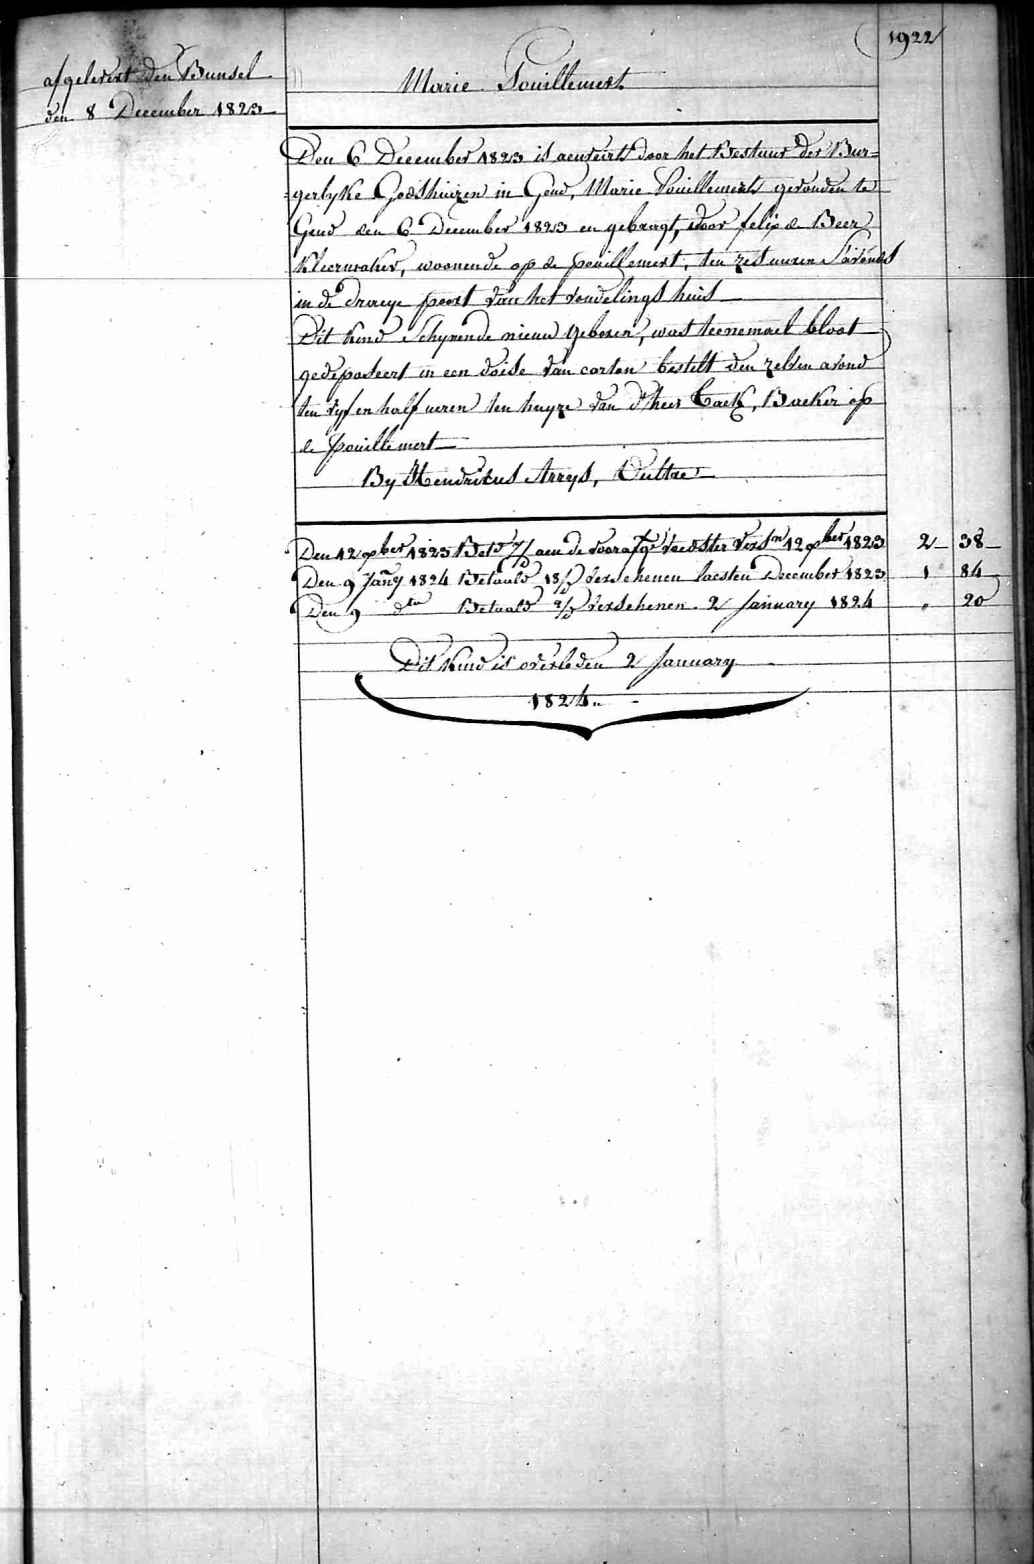 1922
afgelevert den Bunsel
den 8 December 1823
Marie Pouillemert
Den 6 December 1823 is aenveirt door het Bestuur der Bur=
=gerlyke Godshuizen in Gend, Marie Pouillemert gevonden te
Gend den 6 December 1823 en gebragt, door felix de Beer
Kleermaker, woonende op de pouillemert, ten zes uuren S'avonds
in de draeye poort van het vondelings huis
Dit Kind Schynende nieuw Geboren, was teenemael bloot
gedeposeert in een doise van carton bestelt den zelven avond
ten vyf en half ueren ten huyze van d'heer Cack, Backer op
de pouillemert
By Hendrikus Arrys, Cultre
Den 12 xber 1823 Betd 7/D aen de voorafge voedster Versn 12 xber 1823 2 38
Den 9 Jany 1824 Betaald 18/D Verschenen laesten December 1823 1 84
Den 9 dto Betaald 2/D Verschenen 2 January 1824 " 20
Dit Kind is overleden 2 January
1824